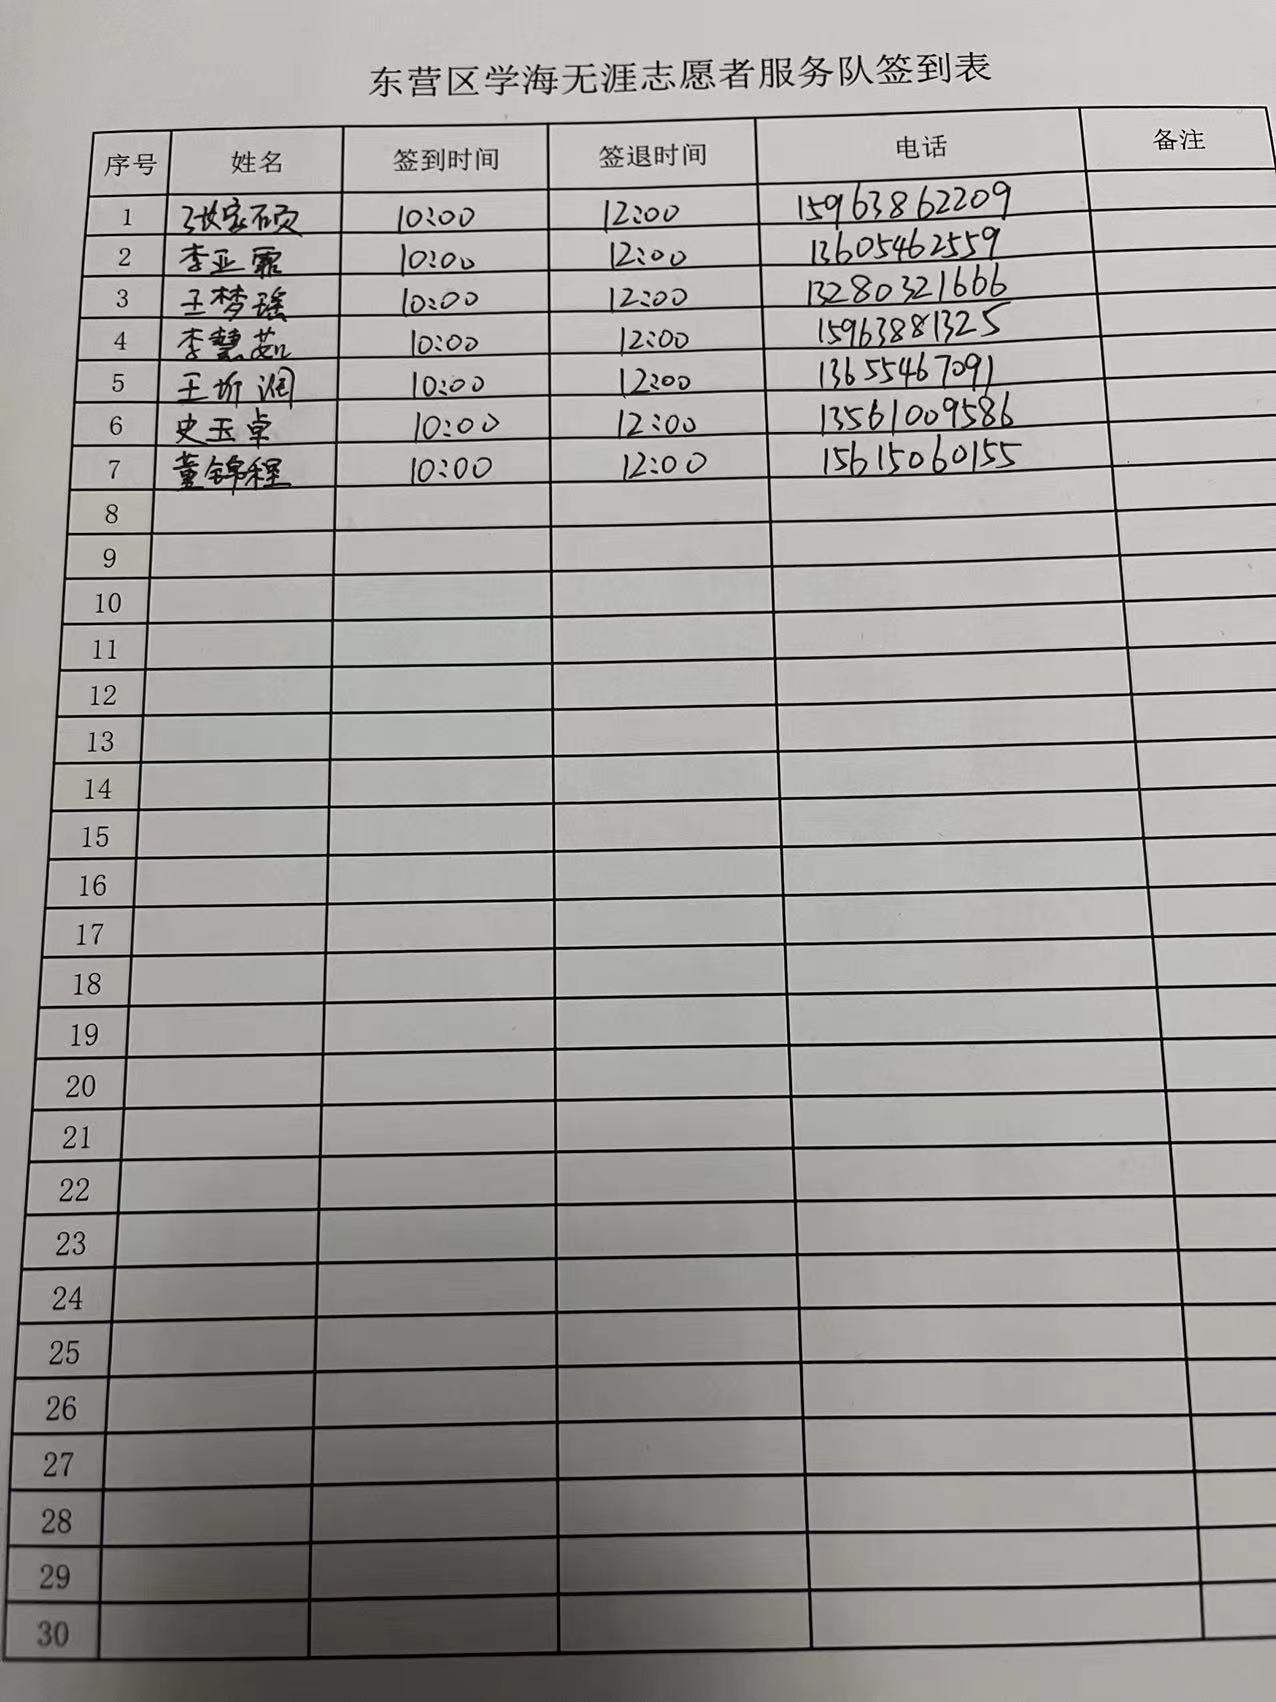 东营区学海无涯志愿者服务队签到表
序号 姓名 签到时间 签退时间 电话 备注
1 张家硕 10:00 12:00 15963862209
2 李亚霏 10:00 12:00 13605462559
3 王梦瑶 10:00 12:00 13280321666
4 李慧茹 10:00 12:00 15963881325
5 王圻润 10:00 12:00 13655467091
6 史玉卓 10:00 12:00 13561009586
7 董锦程 10:00 12:00 15615060155
8
9
10
11
12
13
14
15
16
17
18
19
20
21
22
23
24
25
26
27
28
29
30